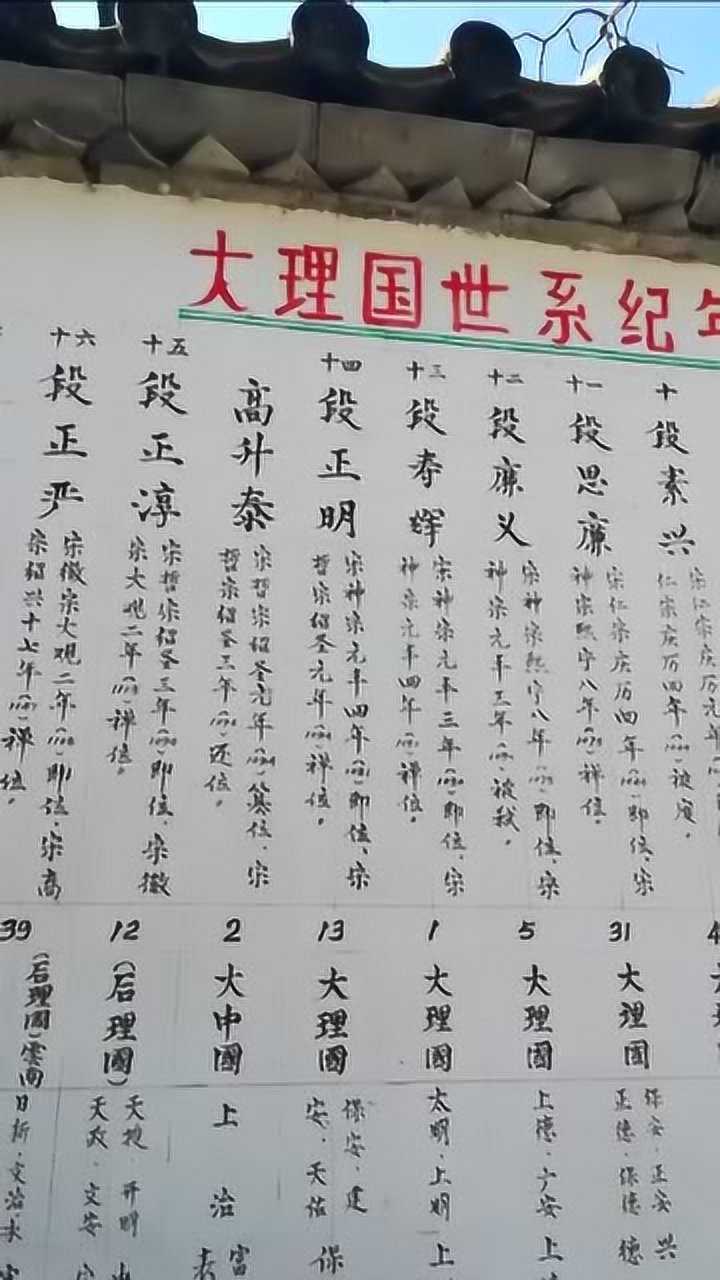 大理国世系纪年
十
段素兴
宋仁宗庆历元年
仁宗庆历四年(1044)被废。
十一
段思廉
宋仁宗庆历四年(1044)即位、宋
神宗熙宁八年(1075)禅位。
31
大理國
保安、正安
正德、保德
十二
段廉义
宋神宗熙宁八年(1075)即位、宋
神宗元丰三年(1080)被弑。
5
大理國
上德、广安
十三
段寿辉
宋神宗元丰三年(1080)即位、宋
神宗元丰四年(1081)禅位。
1
大理國
太明、上明
十四
段正明
宋神宗元丰四年(1081)即位、宋
哲宗绍圣元年(1094)禅位。
13
大理國
保安、建
安、天佑
高升泰
宋哲宗绍圣元年(1094)篡位、宋
哲宗绍圣三年(1096)还位。
2
大中國
上治
十五
段正淳
宋哲宗绍圣三年(1096)即位、宋徽
宗大观二年(1108)禅位。
12
(后理國)
天授、开明
天政、文安
十六
段正严
宋徽宗大观二年(1108)即位、宋高
宗绍兴十七年(1147)禅位。
39
(后理國)雲南
日新、文治、永
兴
德
上
上
保
富